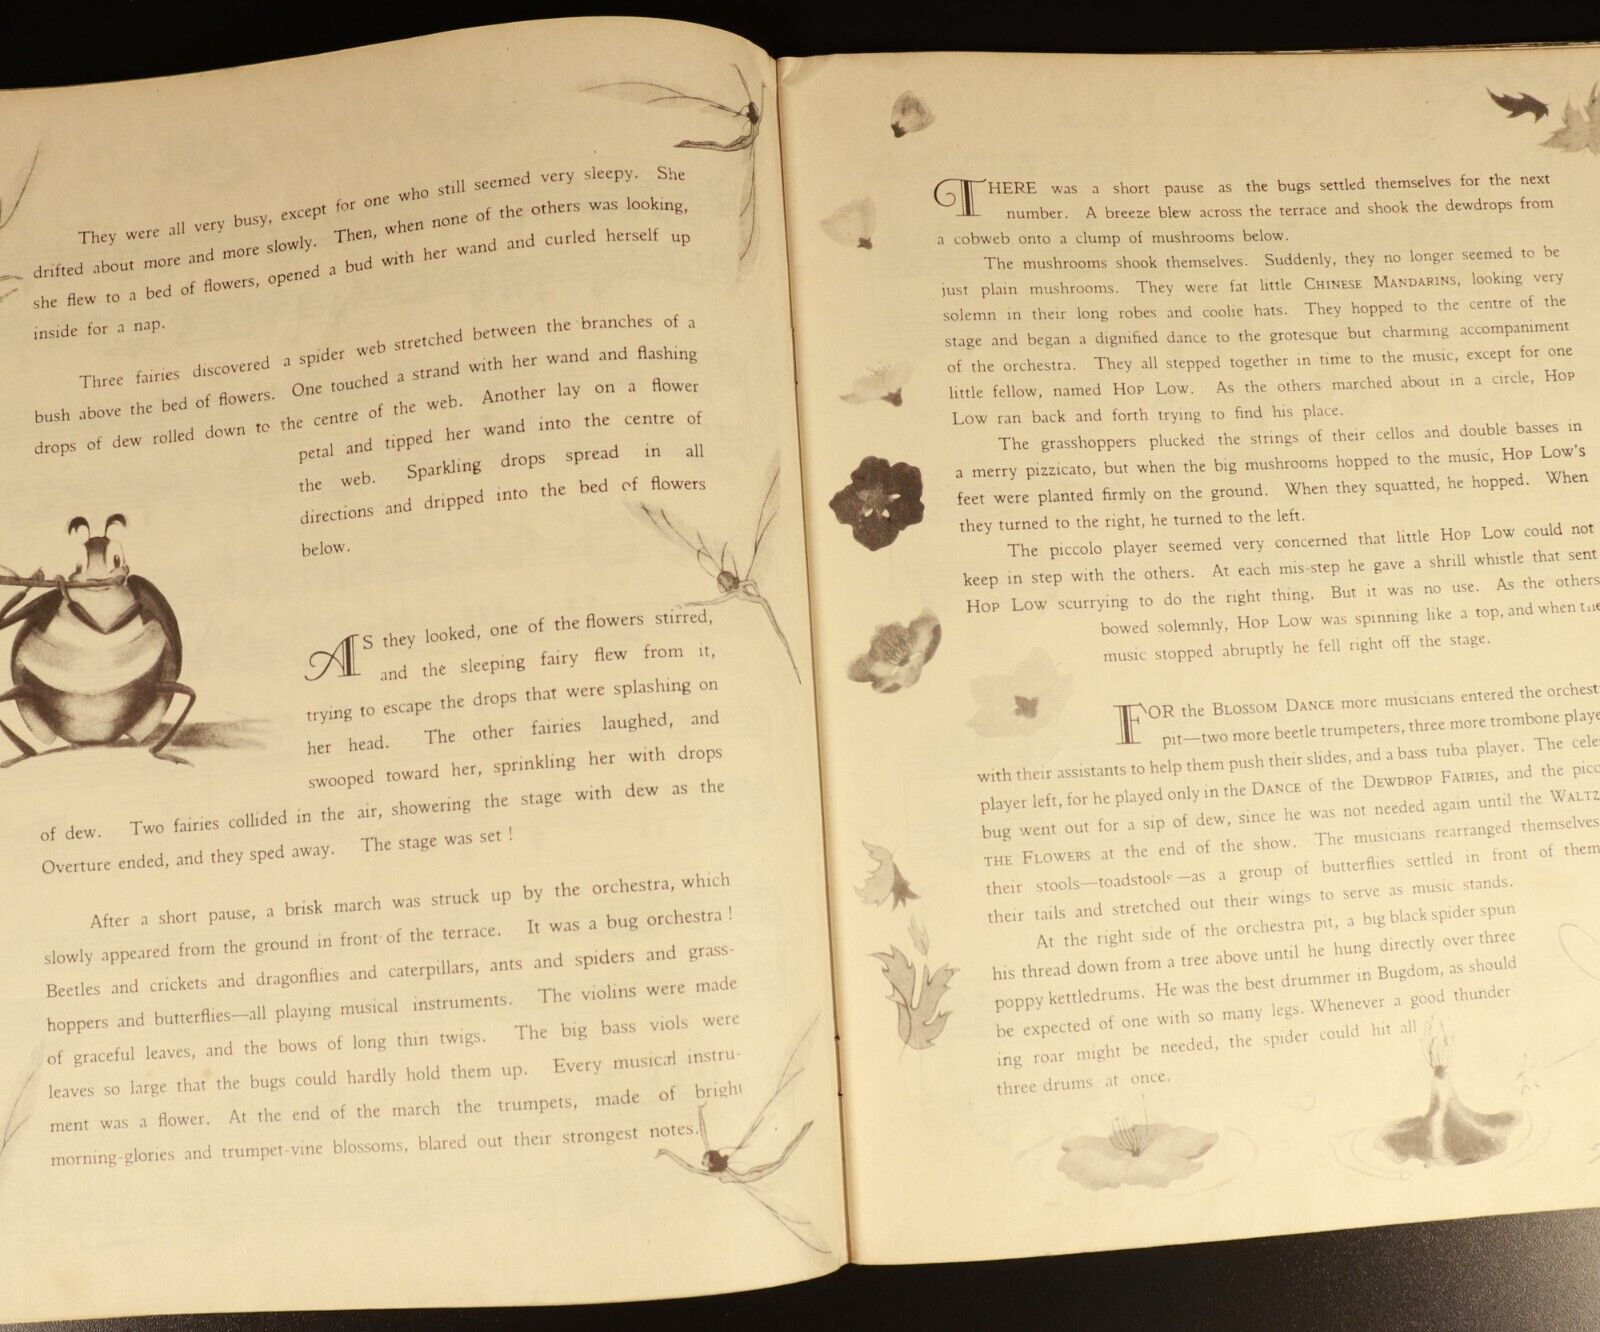 They were all very busy, except for one who still seemed very sleepy. She
drifted about more and more slowly. Then, when none of the others was looking,
she flew to a bed of flowers, opened a bud with her wand and curled herself up
inside for a nap.
Three fairies discovered a spider web stretched between the branches of a
bush above the bed of flowers. One touched a strand with her wand and flashing
drops of dew rolled down to the centre of the web. Another lay on a flower
petal and tipped her wand into the centre of
the web. Sparkling drops spread in all
directions and dripped into the bed of flowers
below.
AS they looked, one of the flowers stirred,
and the sleeping fairy flew from it,
trying to escape the drops that were splashing on
her head. The other fairies laughed, and
swooped toward her, sprinkling her with drops
of dew. Two fairies collided in the air, showering the stage with dew as the
Overture ended, and they sped away. The stage was set !
After a short pause, a brisk march was struck up by the orchestra, which
slowly appeared from the ground in front of the terrace. It was a bug orchestra !
Beetles and crickets and dragonflies and caterpillars, ants and spiders and grass-
hoppers and butterflies—all playing musical instruments. The violins were made
of graceful leaves, and the bows of long thin twigs. The big bass viols were
leaves so large that the bugs could hardly hold them up. Every musical instru-
ment was a flower. At the end of the march the trumpets, made of bright
morning-glories and trumpet-vine blossoms, blared out their strongest notes.
THERE was a short pause as the bugs settled themselves for the next
number. A breeze blew across the terrace and shook the dewdrops from
a cobweb onto a clump of mushrooms below.
The mushrooms shook themselves. Suddenly, they no longer seemed to be
just plain mushrooms. They were fat little CHINESE MANDARINS, looking very
solemn in their long robes and coolie hats. They hopped to the centre of the
stage and began a dignified dance to the grotesque but charming accompaniment
of the orchestra. They all stepped together in time to the music, except for one
little fellow, named HOP LOW. As the others marched about in a circle, HOP
LOW ran back and forth trying to find his place.
The grasshoppers plucked the strings of their cellos and double basses in
a merry pizzicato, but when the big mushrooms hopped to the music, HOP LOW'S
feet were planted firmly on the ground. When they squatted, he hopped. When
they turned to the right, he turned to the left.
The piccolo player seemed very concerned that little HOP LOW could not
keep in step with the others. At each mis-step he gave a shrill whistle that sent
HOP LOW scurrying to do the right thing. But it was no use. As the others
bowed solemnly, HOP LOW was spinning like a top, and when the
music stopped abruptly he fell right off the stage.
FOR the BLOSSOM DANCE more musicians entered the orchest
pit—two more beetle trumpeters, three more trombone playe
with their assistants to help them push their slides, and a bass tuba player. The cele
player left, for he played only in the DANCE of the DEWDROP FAIRIES, and the picc
bug went out for a sip of dew, since he was not needed again until the WALTZ
THE FLOWERS at the end of the show. The musicians rearranged themselves
their stools—toadstools—as a group of butterflies settled in front of them
their tails and stretched out their wings to serve as music stands.
At the right side of the orchestra pit, a big black spider spun
his thread down from a tree above until he hung directly over three
poppy kettledrums. He was the best drummer in Bugdom, as should
be expected of one with so many legs. Whenever a good thunder
ing roar might be needed, the spider could hit all
three drums at once.